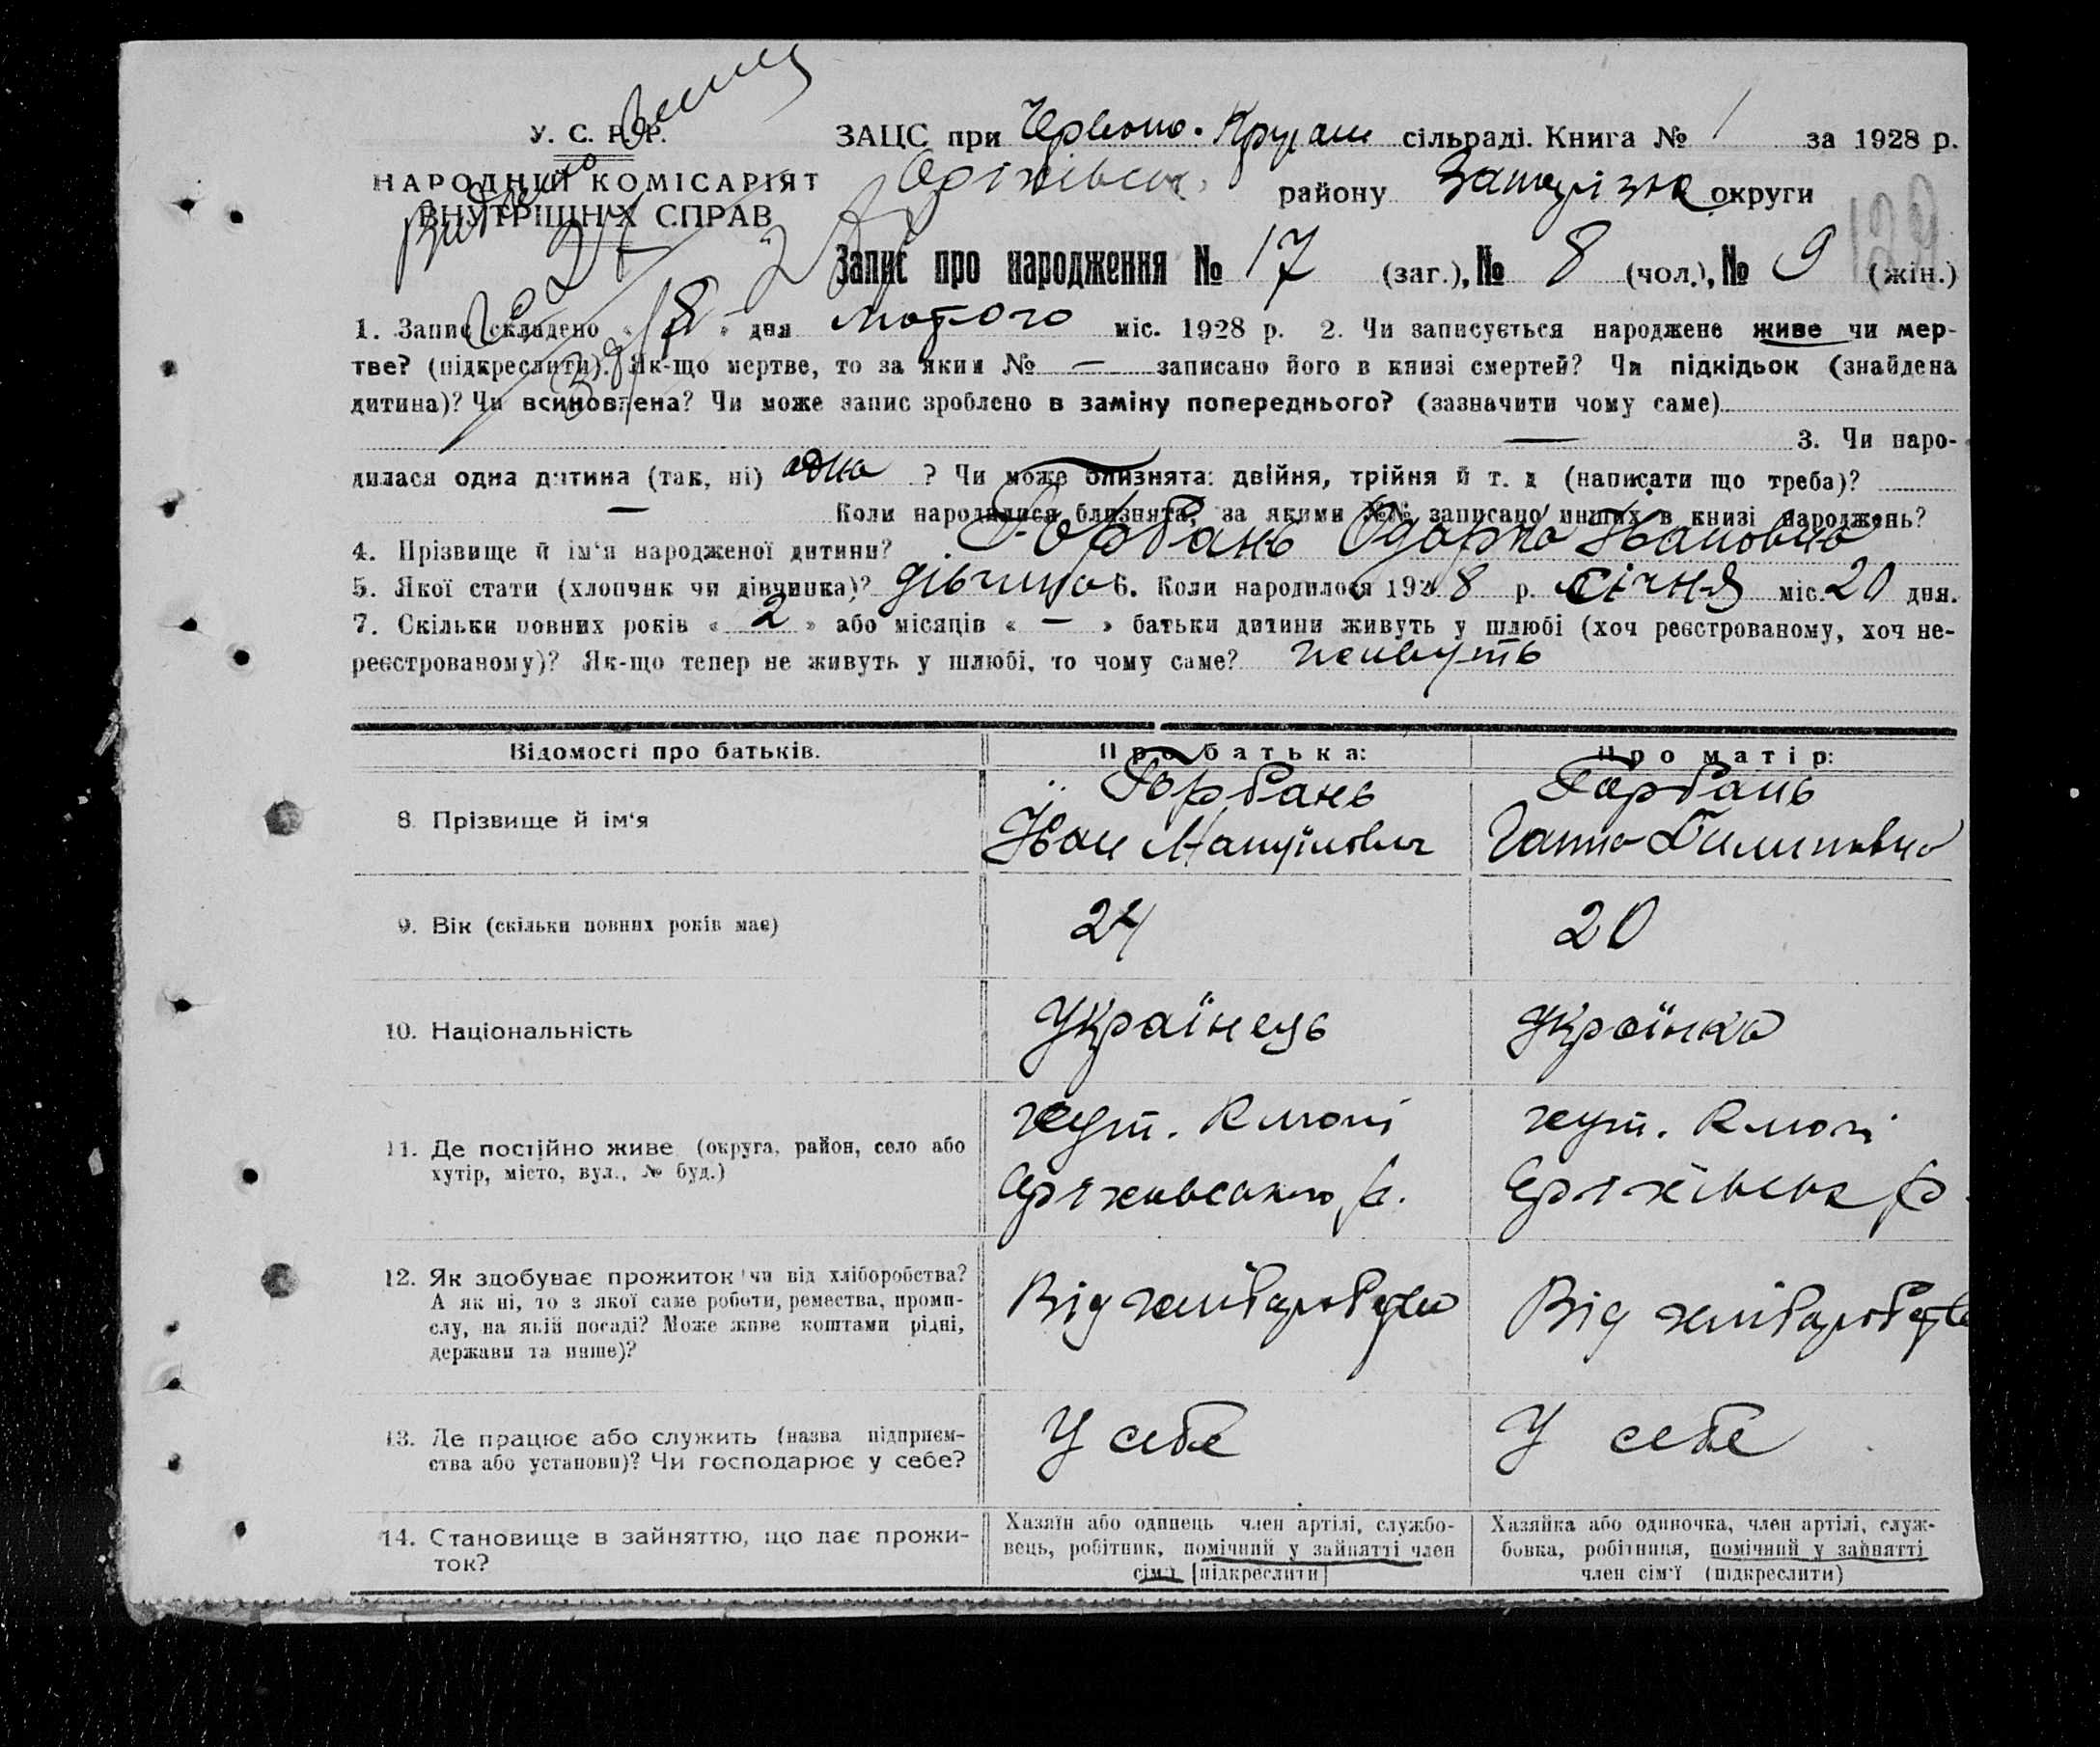 У. С. Р. Р.
НАРОДНИЙ КОМІСАРІЯТ
ВНУТРІШНІХ СПРАВ
ЗАЦС при Червоно. сільраді. Книга № 1 за 1928 р.
Оріхівськ. району округи
Запис про народження № 17 (заг.), № 8 (чол.), № 9 (жін.)
1. Запис складено « 8 » дня лютого міс. 1928 р. 2. Чи записується народжене живе чи мер-
тве? (підкреслити). Як-що мертве, то за яким № — записано його в книзі смертей? Чи підкідьок (знайдена
дитина)? Чи всиновлена? Чи може запис зроблено в заміну попереднього? (зазначити чому саме)
— 3. Чи наро-
дилася одна дитина (так, ні) одна ? Чи може близнята: двійня, трійня й т. д (написати що треба)?
— Коли народилися близнята, за якими №№ записано инших в книзі народжень?
4. Прізвище й ім'я народженої дитини? Горбань Одарка Івановна
5. Якої стати (хлопчик чи дівчинка)? дівчина 6. Коли народилося 1928 р. січня міс. 20 дня.
7. Скільки повних років « 2 » або місяців « — » батьки дитини живуть у шлюбі (хоч реєстрованому, хоч не-
реєстрованому)? Як-що тепер не живуть у шлюбі, то чому саме? живуть
Відомості про батьків. Про батька: Про матір:
8. Прізвище й ім'я
Горбань
Іван Мануїлович
Горбань
Ганна Филиповна
9. Вік (скільки повних років має) 24 20
10. Національність Українець Українка
11. Де постійно живе (округа, район, село або
хутір, місто, вул., № буд.)
хут.
Оріховського р.
хут.
Оріхівськ р.
12. Як здобуває прожиток чи від хліборобства?
А як ні, то з якої саме роботи, ремества, проми-
слу, на якій посаді? Може живе коштами рідні,
держави та инше)?
Від хліборобства
Від хліборобства
13. Де працює або служить (назва підприєм-
ства або установи)? Чи господарює у себе?
У себе
У себе
14. Становище в зайняттю, що дає прожи-
ток?
Хазяїн або одинець член артілі, службо-
вець, робітник, помічний у зайнятті член
сім'ї [підкреслити]
Хазяйка або одиночка, член артілі, служ-
бовка, робітниця, помічний у зайнятті
член сім'ї (підкреслити)